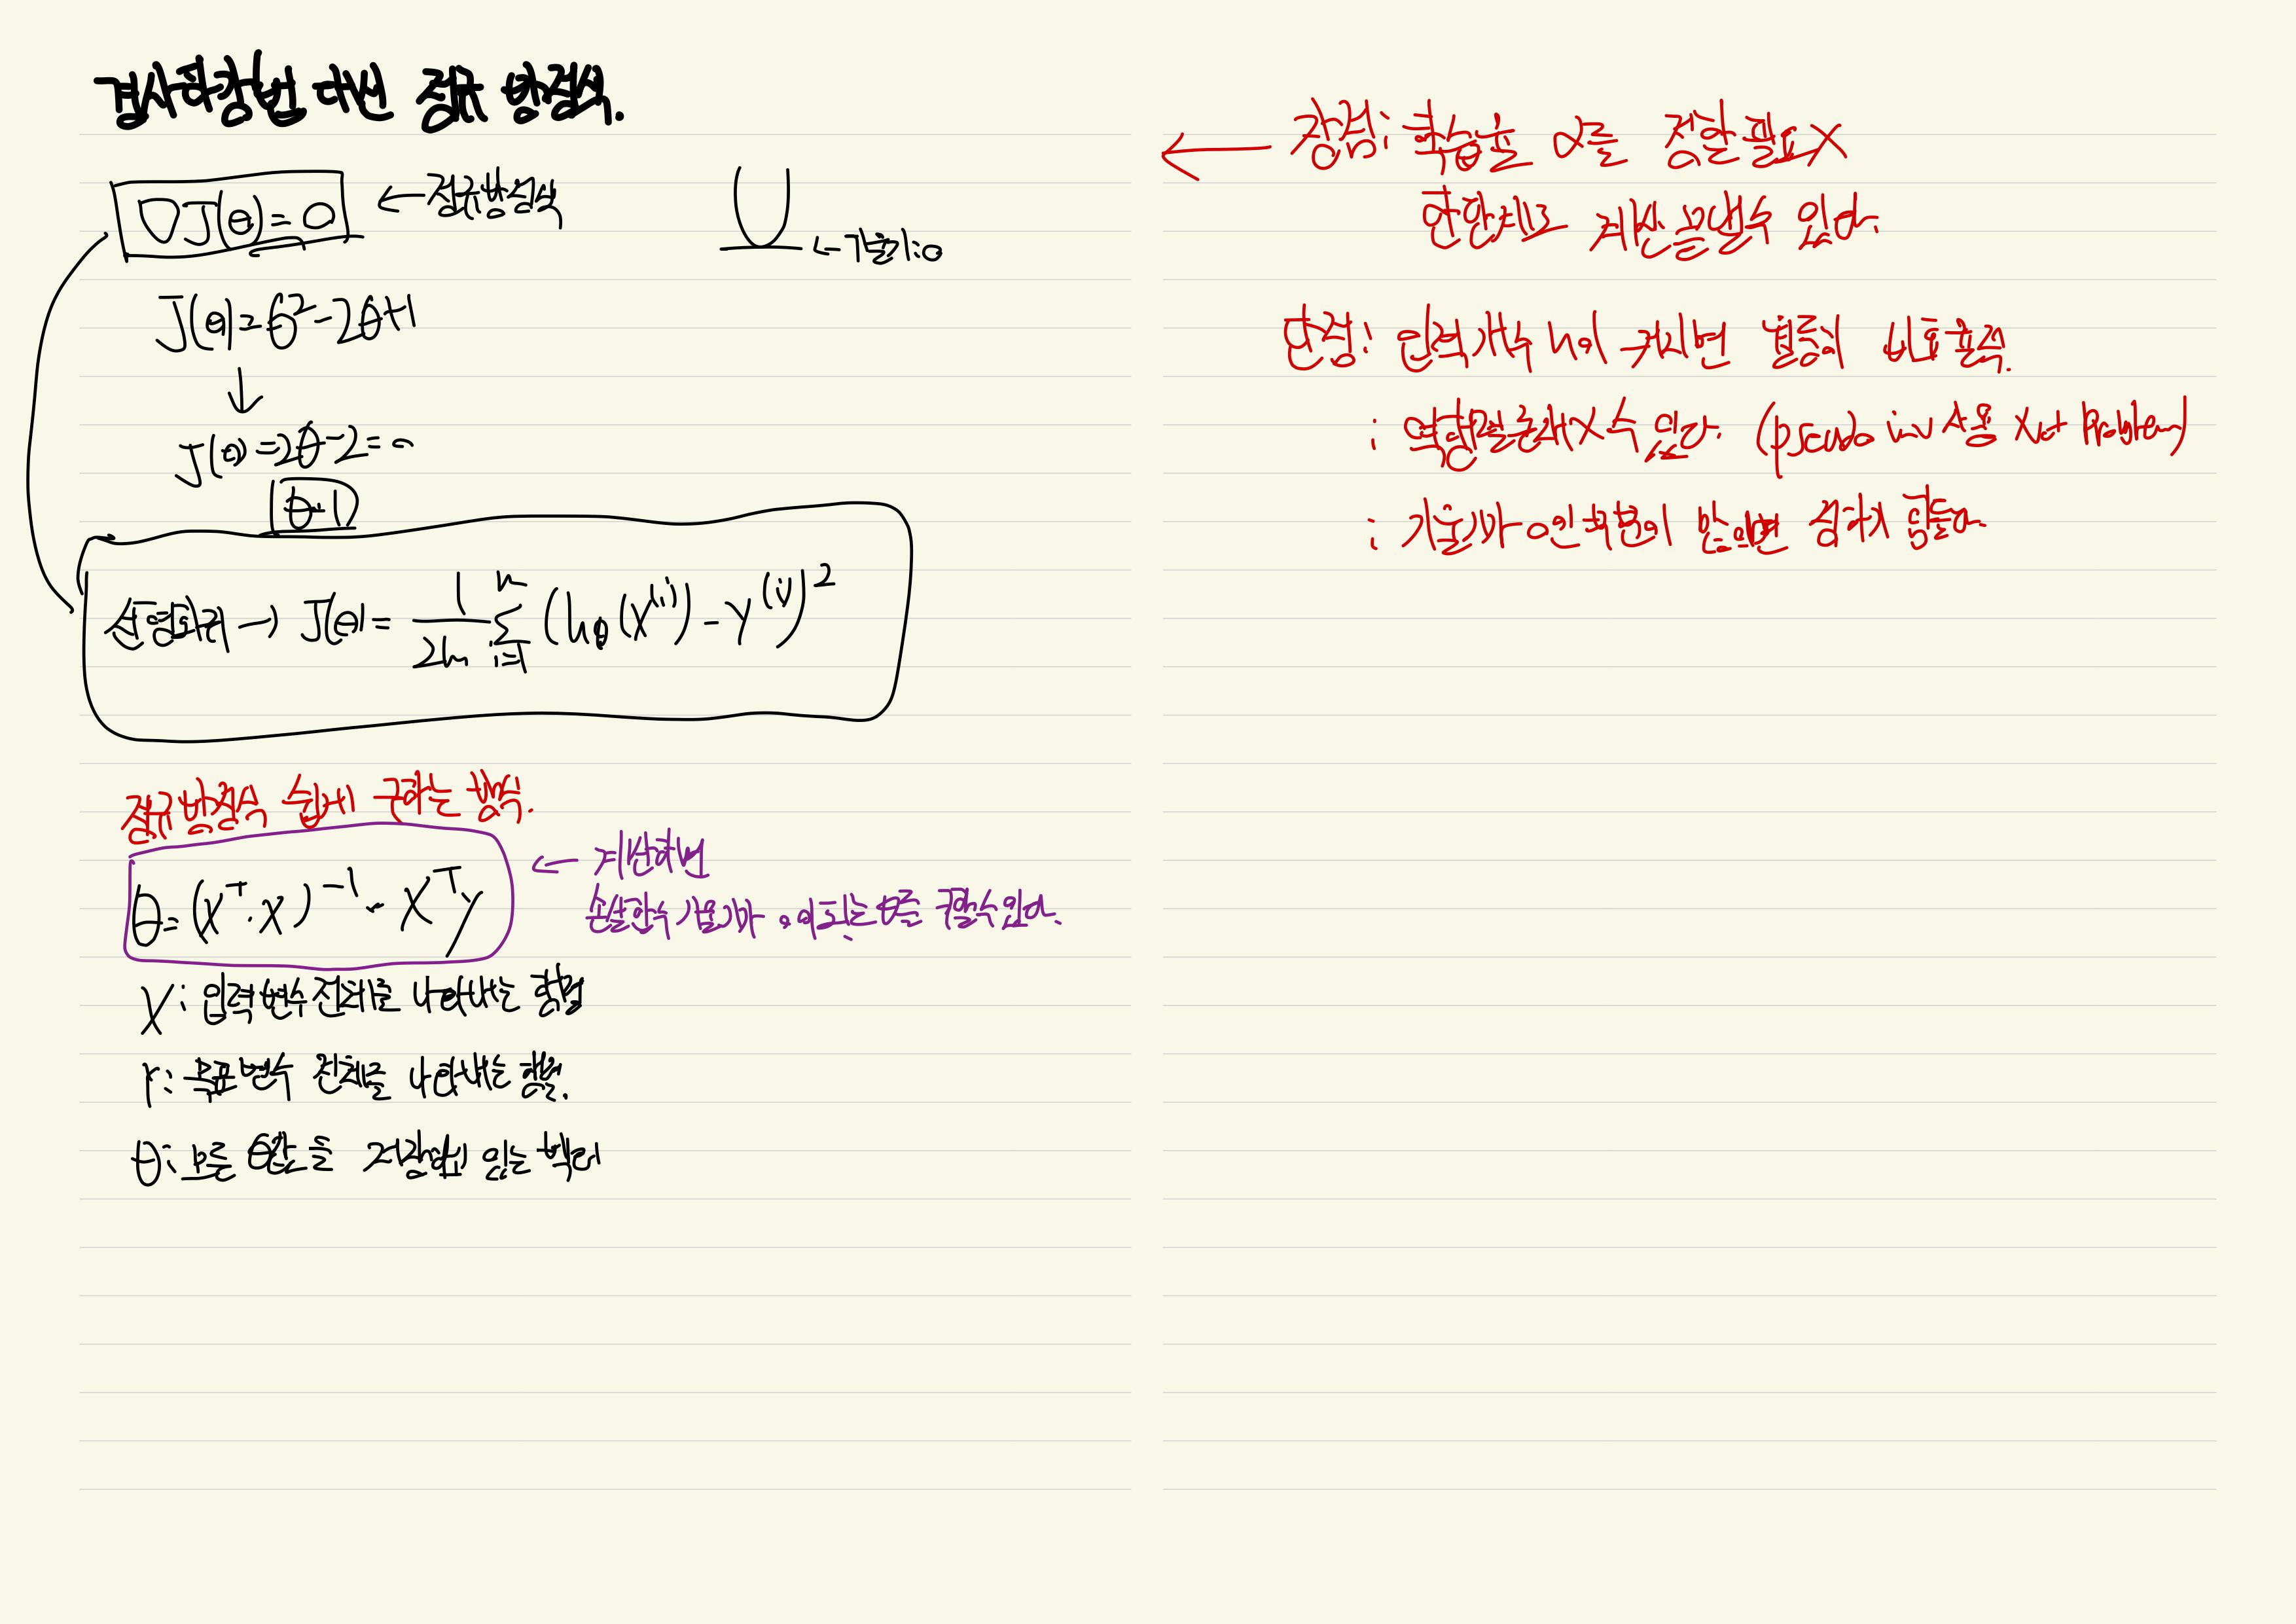 경사하강법 대신 정규 방정식.
▽J(θ)=0 ← 정규방정식
← 기울기:0
J(θ)=θ²-2θ+1
↓
J(θ)=2θ-2=0
θ=1
선형회귀 → J(θ)= 1/2m Σ i=1 m (hθ(x⁽ⁱ⁾)-y⁽ⁱ⁾)²
정규방정식 쉽게 구하는 방식.
θ=(X^T·X)^-1·X^T y
← 계산하면
손실함수 기울기가 0이 되는 θ를 구할수있다.
X: 입력 변수 전체를 나타내는 행렬
Y: 목표 변수 전체를 나타내는 행렬.
θ: 모든 θ값들을 저장하고 있는 벡터
← 장점: 학습율 α를 정할 필요X
한단계로 계산을 끝낼수 있다.
단점: 입력 개수 n이 커지면 비효율적.
: 역행렬존재X수 있다. (pseudo inv 사용 X not problem)
: 기울기가 0인 부분이 많으면 심하게 힘들다.